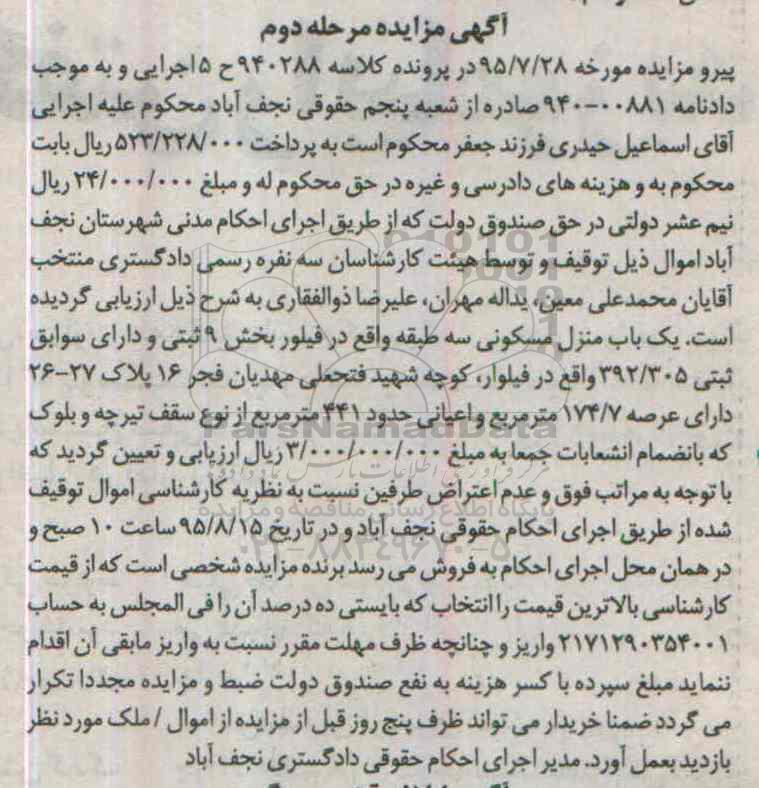 آگهی مزایده مرحله دوم
پیرو مزایده مورخه ۹۵/۷/۲۸ در پرونده کلاسه ۹۴۰۲۸۸ ح ۵ اجرایی و به موجب
دادنامه ۰۰۸۸۱-۹۴۰ صادره از شعبه پنجم حقوقی نجف آباد محکوم علیه اجرایی
آقای اسماعیل حیدری فرزند جعفر محکوم است به پرداخت ۵۲۳/۲۲۸/۰۰۰ ریال بابت
محکوم به و هزینه های دادرسی و غیره در حق محکوم له و مبلغ ۲۴/۰۰۰/۰۰۰ ریال
نیم عشر دولتی در حق صندوق دولت که از طریق اجرای احکام مدنی شهرستان نجف
آباد اموال ذیل توقیف و توسط هیئت کارشناسان سه نفره رسمی دادگستری منتخب
آقایان محمدعلی معین، یداله مهران، علیرضا ذوالفقاری به شرح ذیل ارزیابی گردیده
است. یک باب منزل مسکونی سه طبقه واقع در فیلور بخش ۹ ثبتی و دارای سوابق
ثبتی ۳۹۲/۳۰۵ واقع در فیلوار، کوچه شهید فتحعلی مهدیان فجر ۱۶ پلاک ۲۷-۲۶
دارای عرصه ۱۷۴/۷ مترمربع و اعیانی حدود ۴۴۱ مترمربع از نوع سقف تیرچه و بلوک
که بانضمام انشعابات جمعا به مبلغ ۳/۰۰۰/۰۰۰/۰۰۰ ریال ارزیابی و تعیین گردید که
با توجه به مراتب فوق و عدم اعتراض طرفین نسبت به نظریه کارشناسی اموال توقیف
شده از طریق اجرای احکام حقوقی نجف آباد و در تاریخ ۹۵/۸/۱۵ ساعت ۱۰ صبح و
در همان محل اجرای احکام به فروش می رسد برنده مزایده شخصی است که از قیمت
کارشناسی بالاترین قیمت را انتخاب که بایستی ده درصد آن را فی المجلس به حساب
۲۱۷۱۲۹۰۳۵۴۰۰۱ واریز و چنانچه ظرف مهلت مقرر نسبت به واریز مابقی آن اقدام
ننماید مبلغ سپرده با کسر هزینه به نفع صندوق دولت ضبط و مزایده مجددا تکرار
می گردد ضمنا خریدار می تواند ظرف پنج روز قبل از مزایده از اموال / ملک مورد نظر
بازدید بعمل آورد. مدیر اجرای احکام حقوقی دادگستری نجف آباد
ParsNamadData
پایگاه اطلاع رسانی مناقصه و مزایده
۰۲۱-۸۸۳۴۹۶۷۰-۵